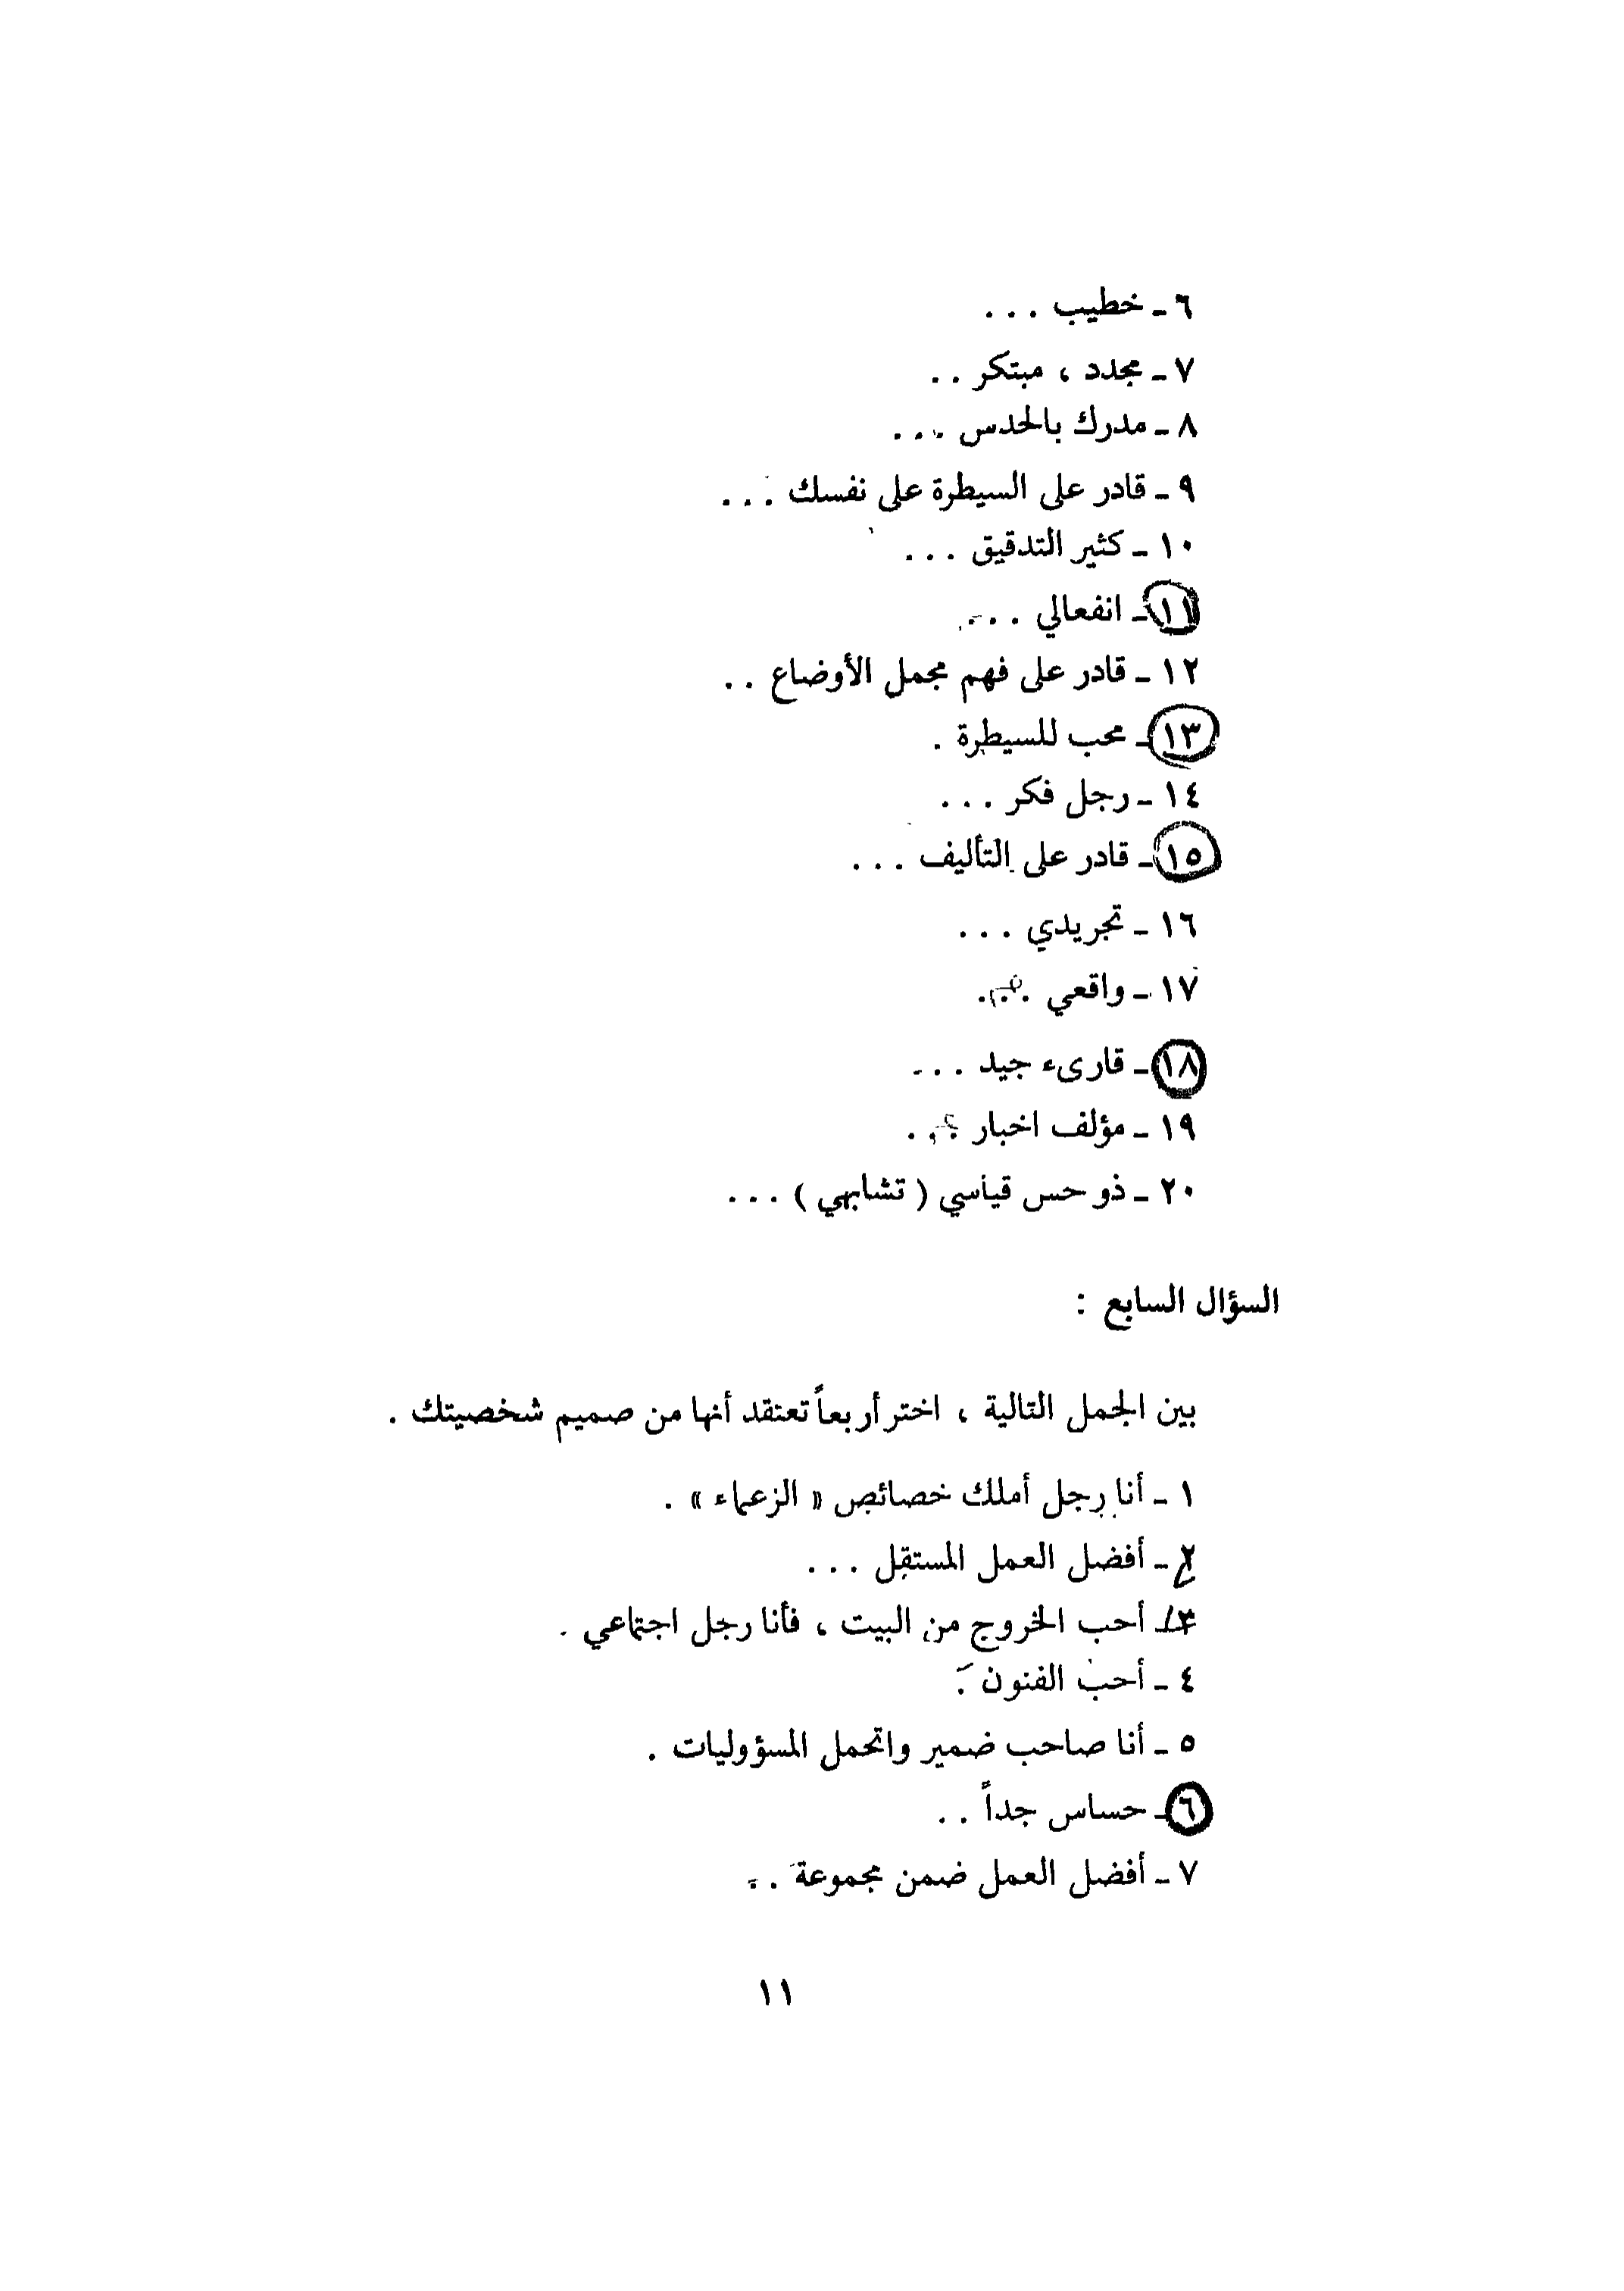 ٦ ـ خطيب . . .
٧ ـ مجدد ، مبتكر . .
٨ ـ مدرك بالحدس . . .
٩ ـ قادر على السيطرة على نفسك . . .
١٠ ـ كثير التدقيق . . .
١١ ـ انفعالي . . .
١٢ ـ قادر على فهم مجمل الأوضاع . .
١٣ ـ محب للسيطرة .
١٤ ـ رجل فكر . . .
١٥ ـ قادر على التأليف . . .
١٦ ـ تجريدي . . .
١٧ ـ واقعي . . .
١٨ ـ قارىء جيد . . .
١٩ ـ مؤلف اخبار . . .
٢٠ ـ ذو حس قياسي ( تشابهي ) . . .
السؤال السابع :
بين الجمل التالية ، اختر أربعاً تعتقد أنها من صميم شخصيتك .
١ ـ أنا رجل أملك خصائص « الزعماء » .
٢ ـ أفضل العمل المستقل . . .
٣ ـ أحب الخروج من البيت ، فأنا رجل اجتماعي .
٤ ـ أحب الفنون .
٥ ـ أنا صاحب ضمير واتحمل المسؤوليات .
٦ ـ حساس جداً . .
٧ ـ أفضل العمل ضمن مجموعة . .
١١